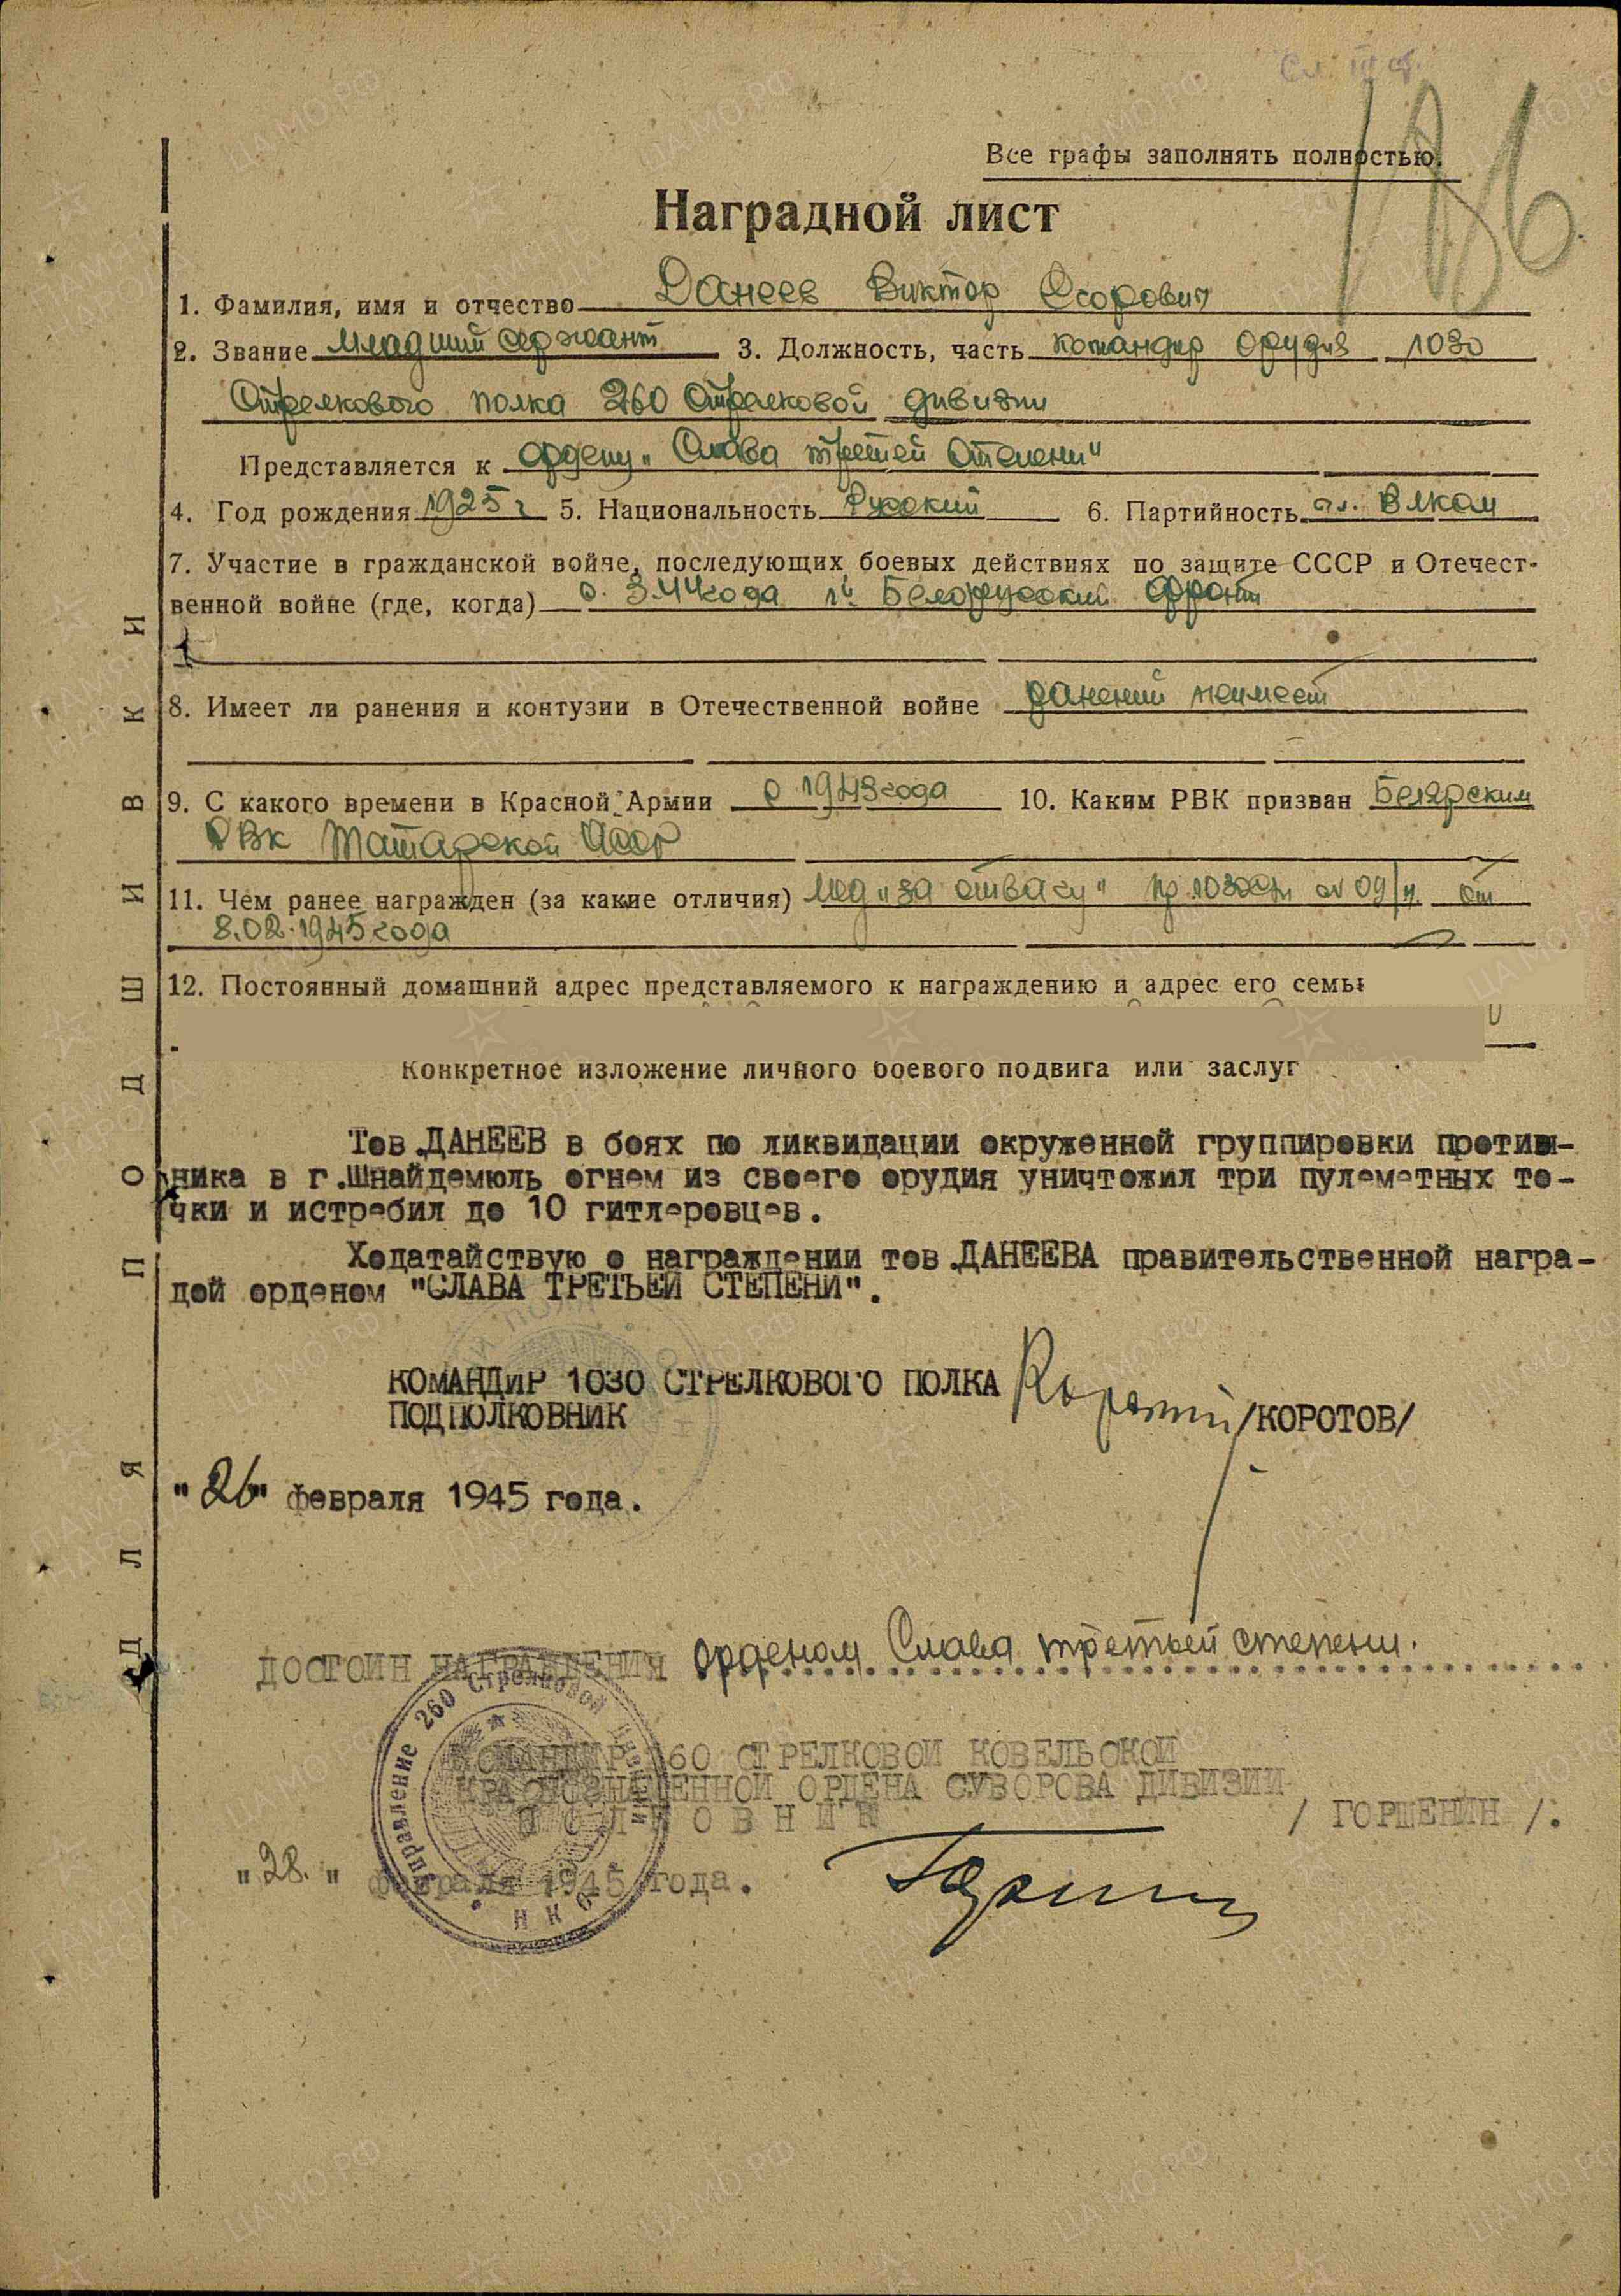 Сл. III ст.
Все графы заполнять полностью.
Наградной лист
1. Фамилия, имя и отчество Данеев Виктор Егорович
2. Звание младший сержант 3. Должность, часть командир орудия 1030
стрелкового полка 260 стрелковой дивизии
Представляется к ордену „Слава третей степени"
4. Год рождения 1925 г 5. Национальность Русский 6. Партийность чл. Влксм
7. Участие в гражданской войне, последующих боевых действиях по защите СССР и Отечест-
венной войне (где, когда) с 3.44 года 1й Белорусский фронт
8. Имеет ли ранения и контузии в Отечественной войне ранений неимеет
9. С какого времени в Красной Армии с 1943 года 10. Каким РВК призван Белярским
РВК Татарской АССР
11. Чем ранее награжден (за какие отличия) мед „за отвагу" пр 1030 сп № 09/н. от
8.02.1945 года
12. Постоянный домашний адрес представляемого к награждению и адрес его семьи
Конкретное изложение личного боевого подвига или заслуг
Тов.ДАНЕЕВ в боях по ликвидации окруженной группировки против-
ника в г.Шнайдемюль огнем из своего орудия уничтожил три пулеметных то-
чки и истребил до 10 гитлеровцев.
Ходатайствую о награждении тов.ДАНЕЕВА правительственной награ-
дой орденом "СЛАВА ТРЕТЬЕЙ СТЕПЕНИ".
КОМАНДИР 1030 СТРЕЛКОВОГО ПОЛКА
ПОДПОЛКОВНИК /КОРОТОВ/
"26" февраля 1945 года.
ДОСТОИН НАГРАЖДЕНИЯ орденом Слава третьей степени.
КОМАНДИР 260 СТРЕЛКОВОЙ КОВЕЛЬСКОЙ
КРАСНОЗНАМЕННОЙ ОРДЕНА СУВОРОВА ДИВИЗИИ
ПОЛКОВНИК / ГОРШЕНИН /.
"28." февраля 1945 года.
Управление 260 Стрелковой дивизии
НКО
ДЛЯ ПОДШИВКИ